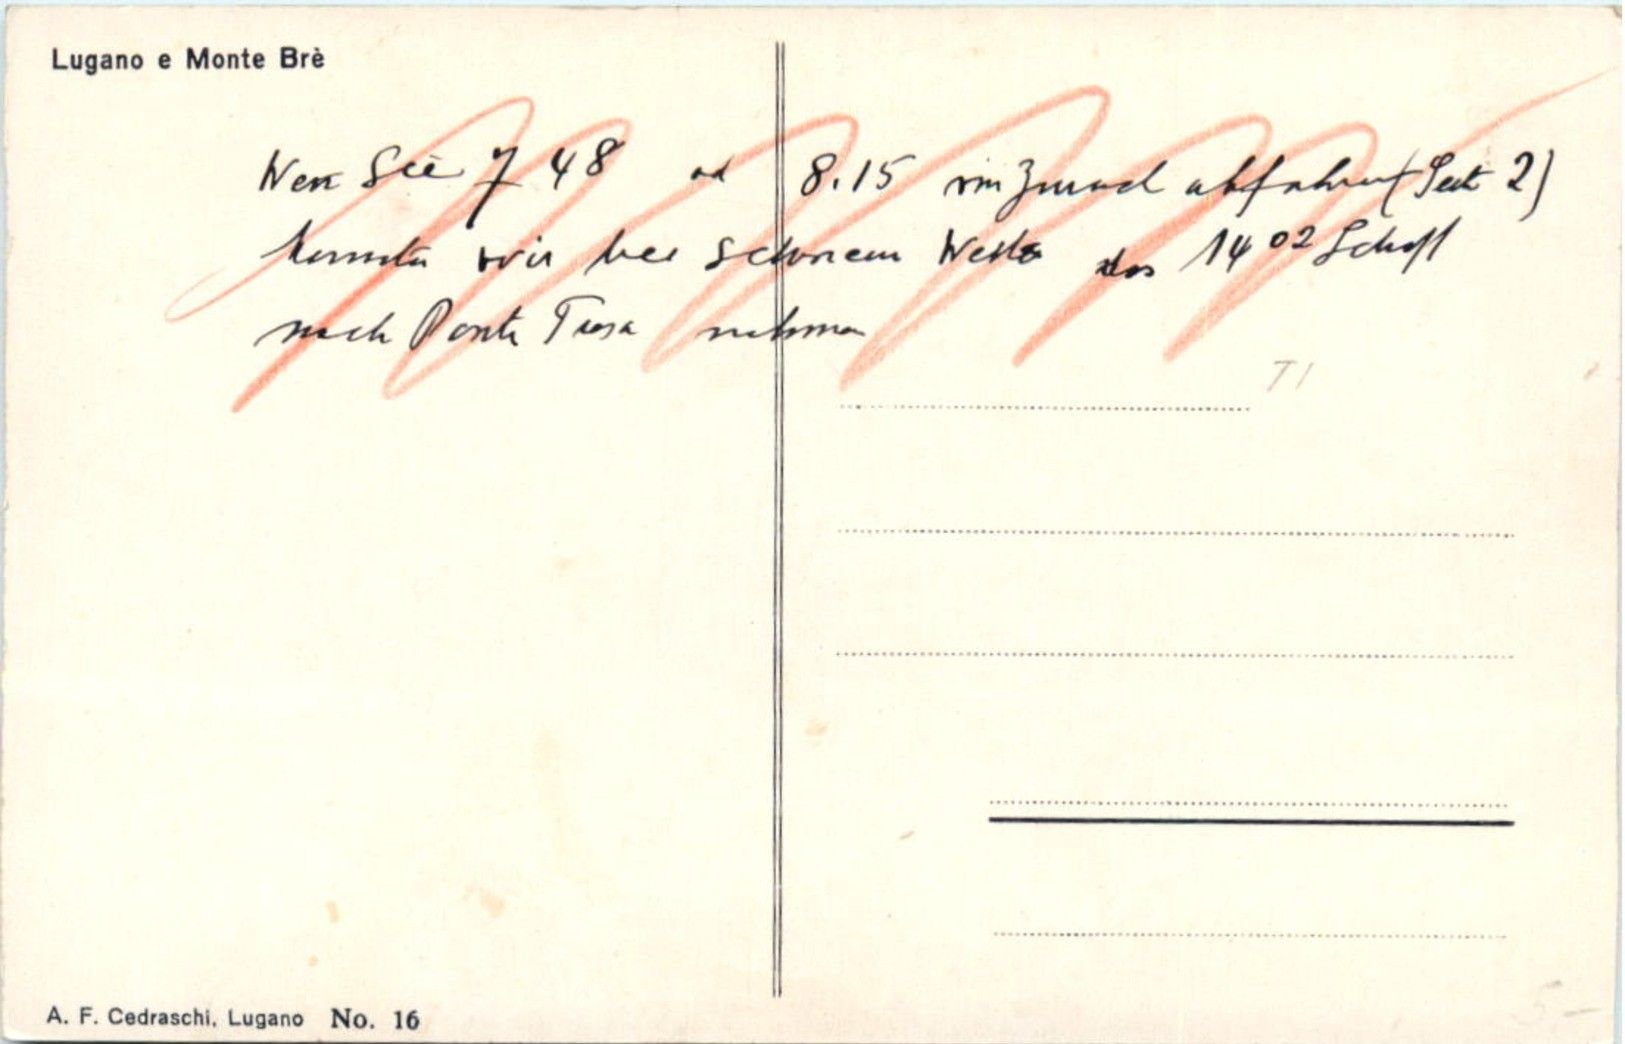 Lugano e Monte Brè
Wenn Sie 7 48 od 8.15 von Zürich abfahren (Seite 2)
könnten wir bei schönem Wetter das 14 02 Schiff
nach Ponte Tresa nehmen
T1
5.-
A. F. Cedraschi, Lugano No. 16